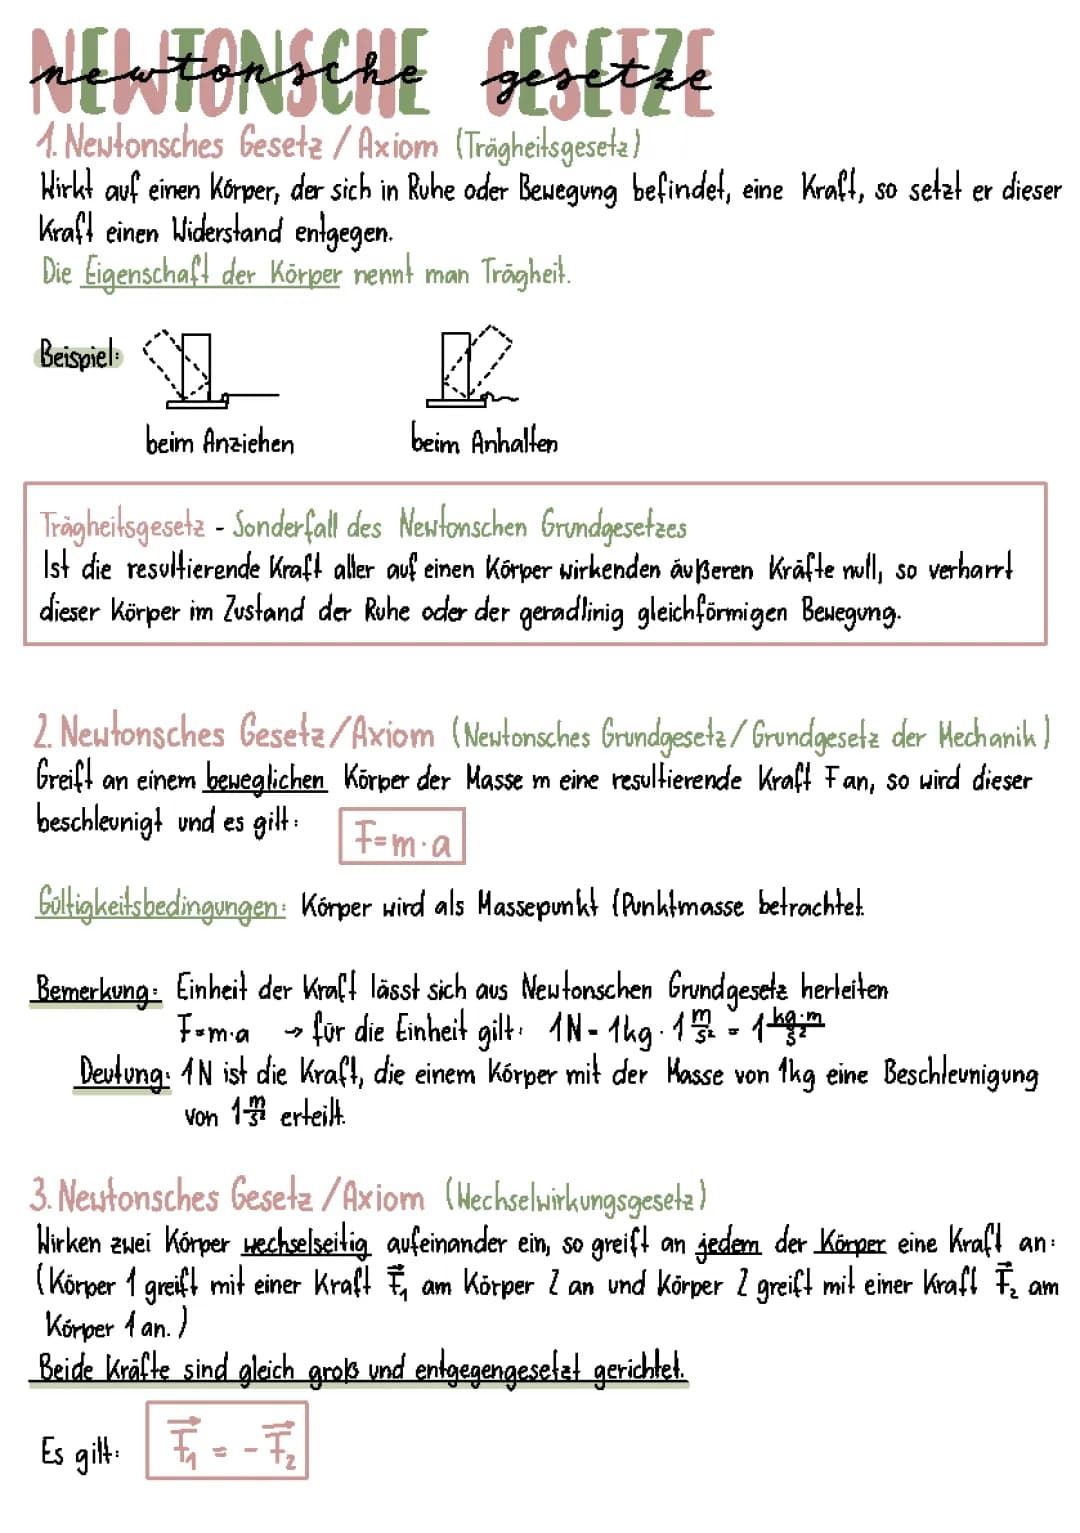 NEWTONSCHE GESETZE
newtonsche gesetze
1. Newtonsches Gesetz / Axiom (Trägheitsgesetz)
Wirkt auf einen Körper, der sich in Ruhe oder Bewegung befindet, eine Kraft, so setzt er dieser
Kraft einen Widerstand entgegen.
Die Eigenschaft der Körper nennt man Trägheit.
Beispiel:
beim Anziehen beim Anhalten
Trägheitsgesetz - Sonderfall des Newtonschen Grundgesetzes
Ist die resultierende Kraft aller auf einen Körper wirkenden äußeren Kräfte null, so verharrt
dieser Körper im Zustand der Ruhe oder der geradlinig gleichförmigen Bewegung.
2. Newtonsches Gesetz/Axiom (Newtonsches Grundgesetz/Grundgesetz der Mechanik)
Greift an einem beweglichen Körper der Masse m eine resultierende Kraft F an, so wird dieser
beschleunigt und es gilt: F=m·a
Gültigkeitsbedingungen: Körper wird als Massepunkt (Punktmasse betrachtet.
Bemerkung: Einheit der Kraft lässt sich aus Newtonschen Grundgesetz herleiten
F=m·a → für die Einheit gilt: 1N = 1kg · 1 m/s² = 1 kg·m/s²
Deutung: 1N ist die Kraft, die einem Körper mit der Masse von 1kg eine Beschleunigung
von 1 m/s² erteilt.
3. Newtonsches Gesetz /Axiom (Wechselwirkungsgesetz)
Wirken zwei Körper wechselseitig aufeinander ein, so greift an jedem der Körper eine Kraft an:
(Körper 1 greift mit einer Kraft F⃗₁ am Körper 2 an und Körper 2 greift mit einer Kraft F⃗₂ am
Körper 1 an.)
Beide Kräfte sind gleich groß und entgegengesetzt gerichtet.
Es gilt: F⃗₁ = - F⃗₂